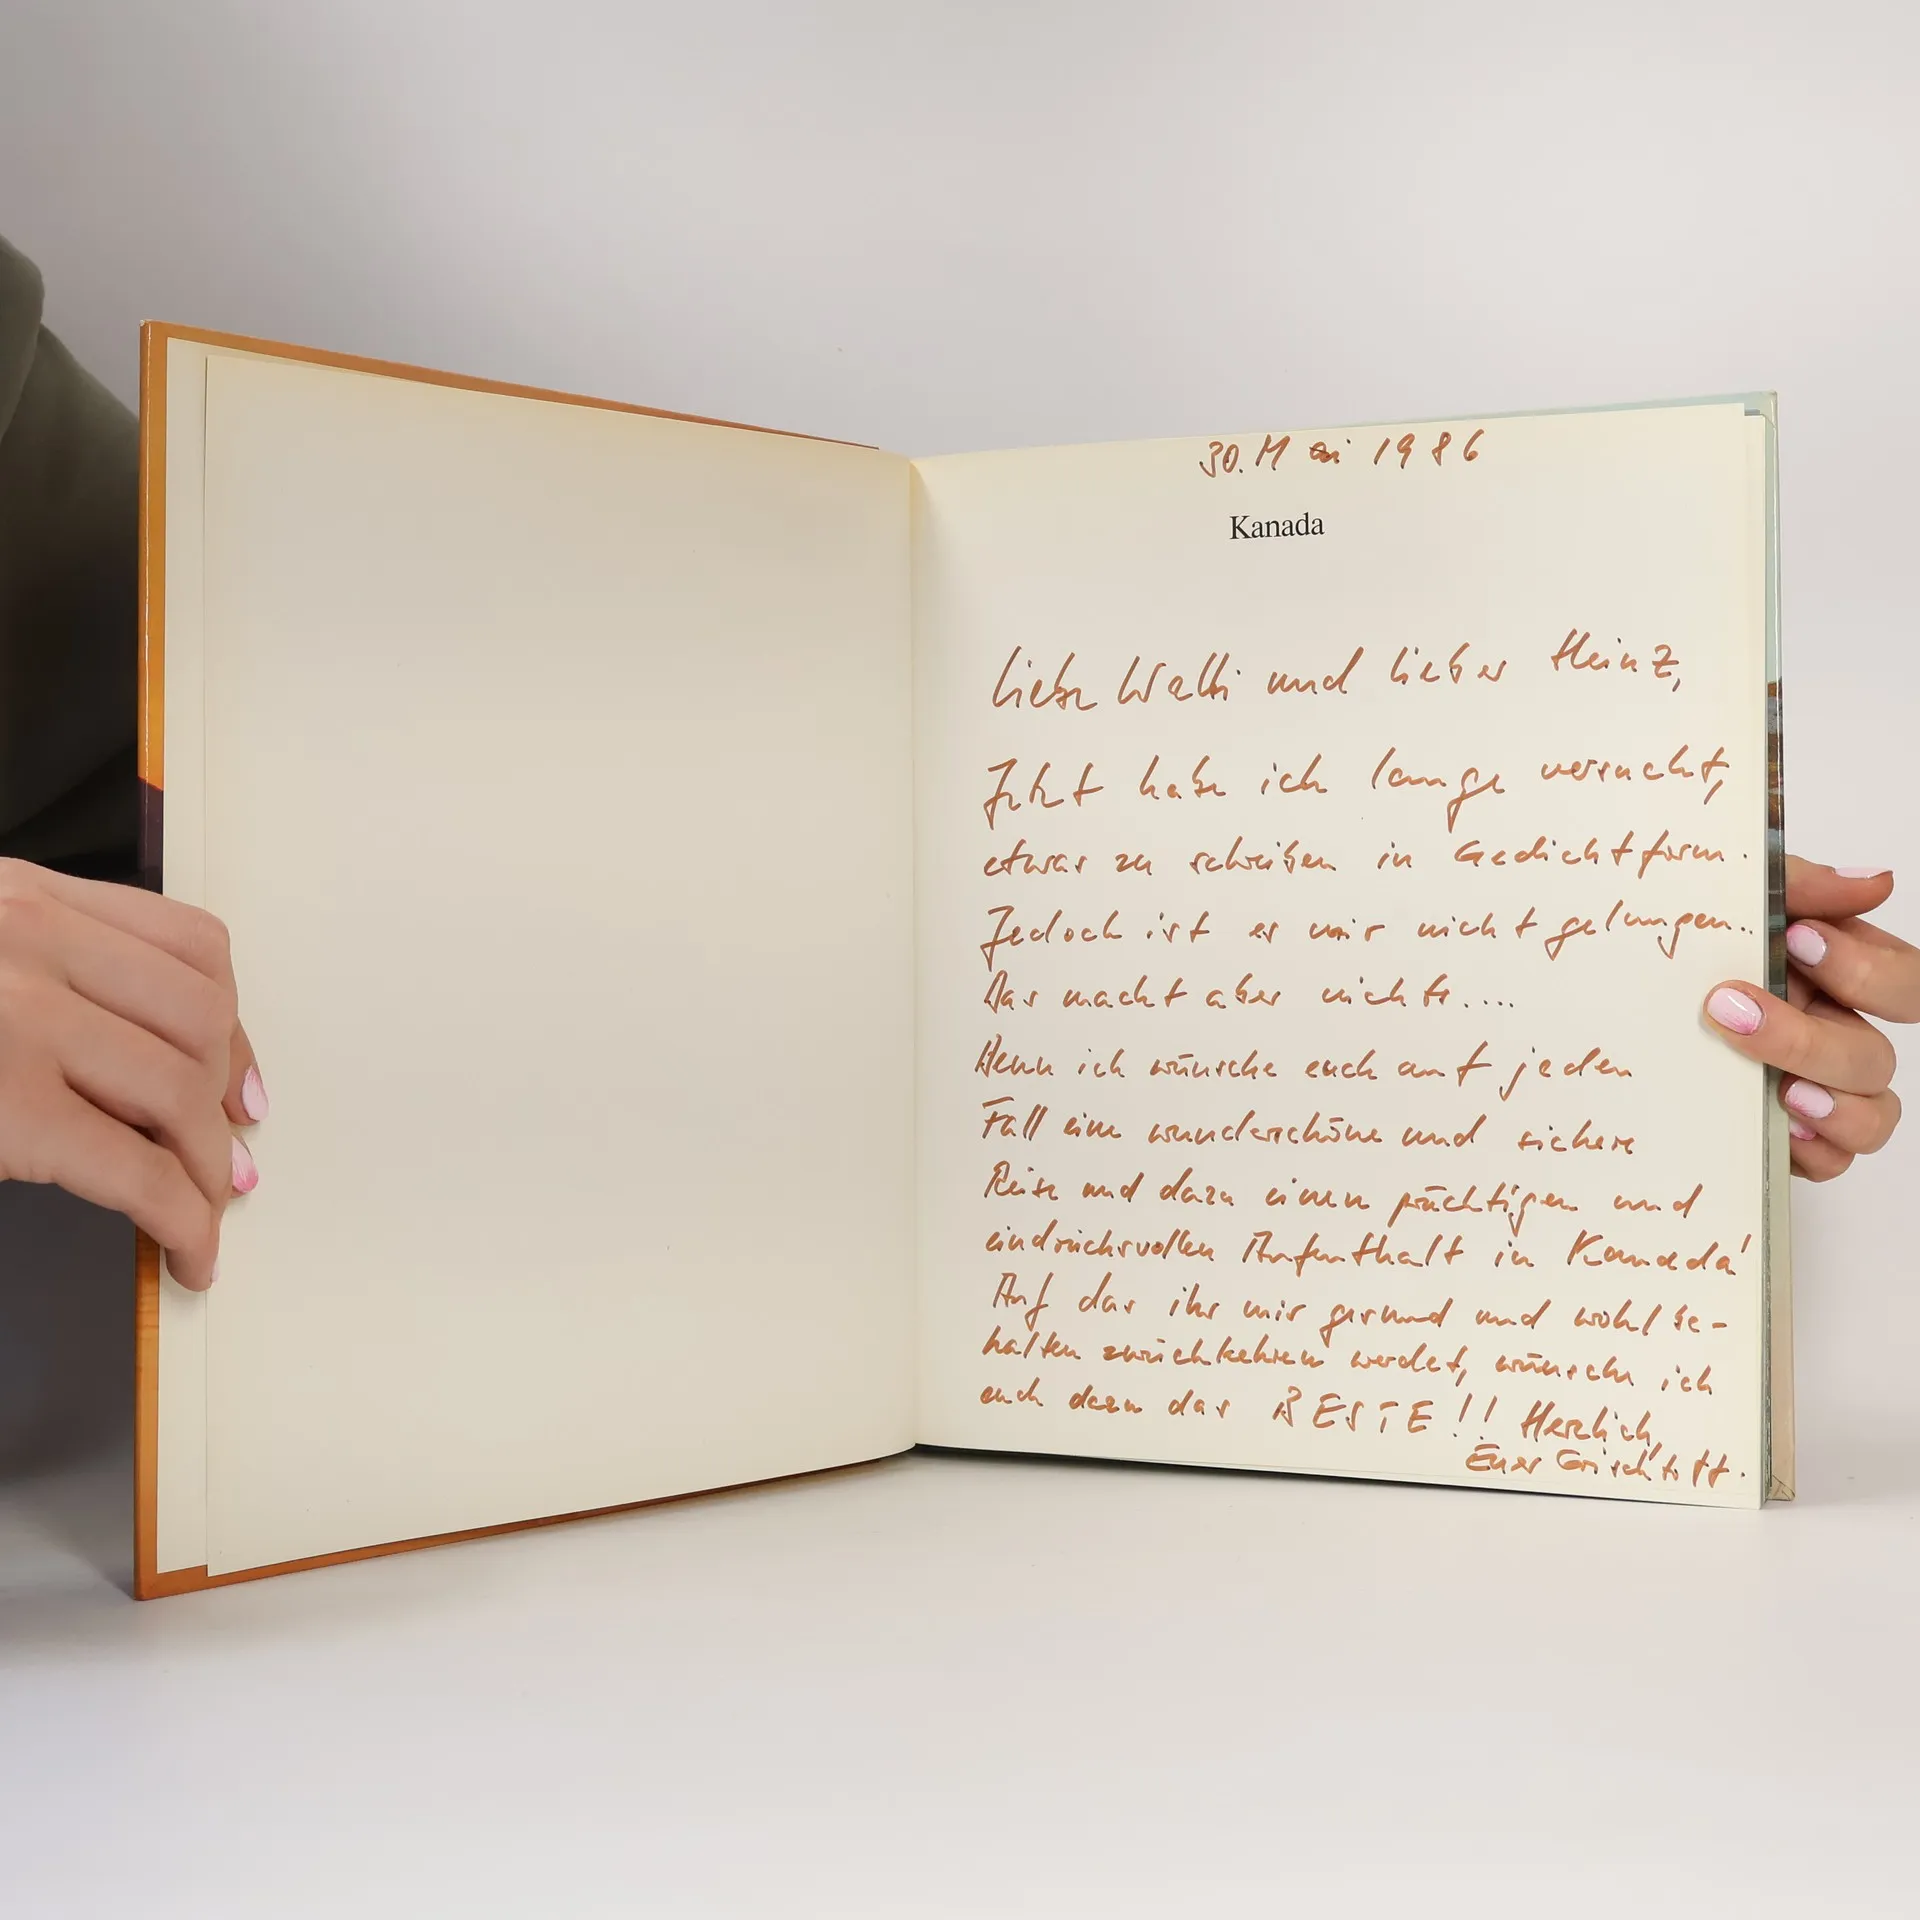 30. Mai 1986
Kanada
Liebe Walli und lieber Heinz,
Jetzt habe ich lange versucht,
etwas zu schreiben in Gedichtform.
Jedoch ist es mir nicht gelungen..
Das macht aber nichts....
Denn ich wünsche euch auf jeden
Fall eine wunderschöne und sichere
Reise und dazu einen prächtigen und
eindrucksvollen Aufenthalt in Kanada!
Auf das ihr mir gesund und wohl be-
halten zurückkehren werdet, wünsche ich
euch dazu das BESTE!! Herzlich,
Euer